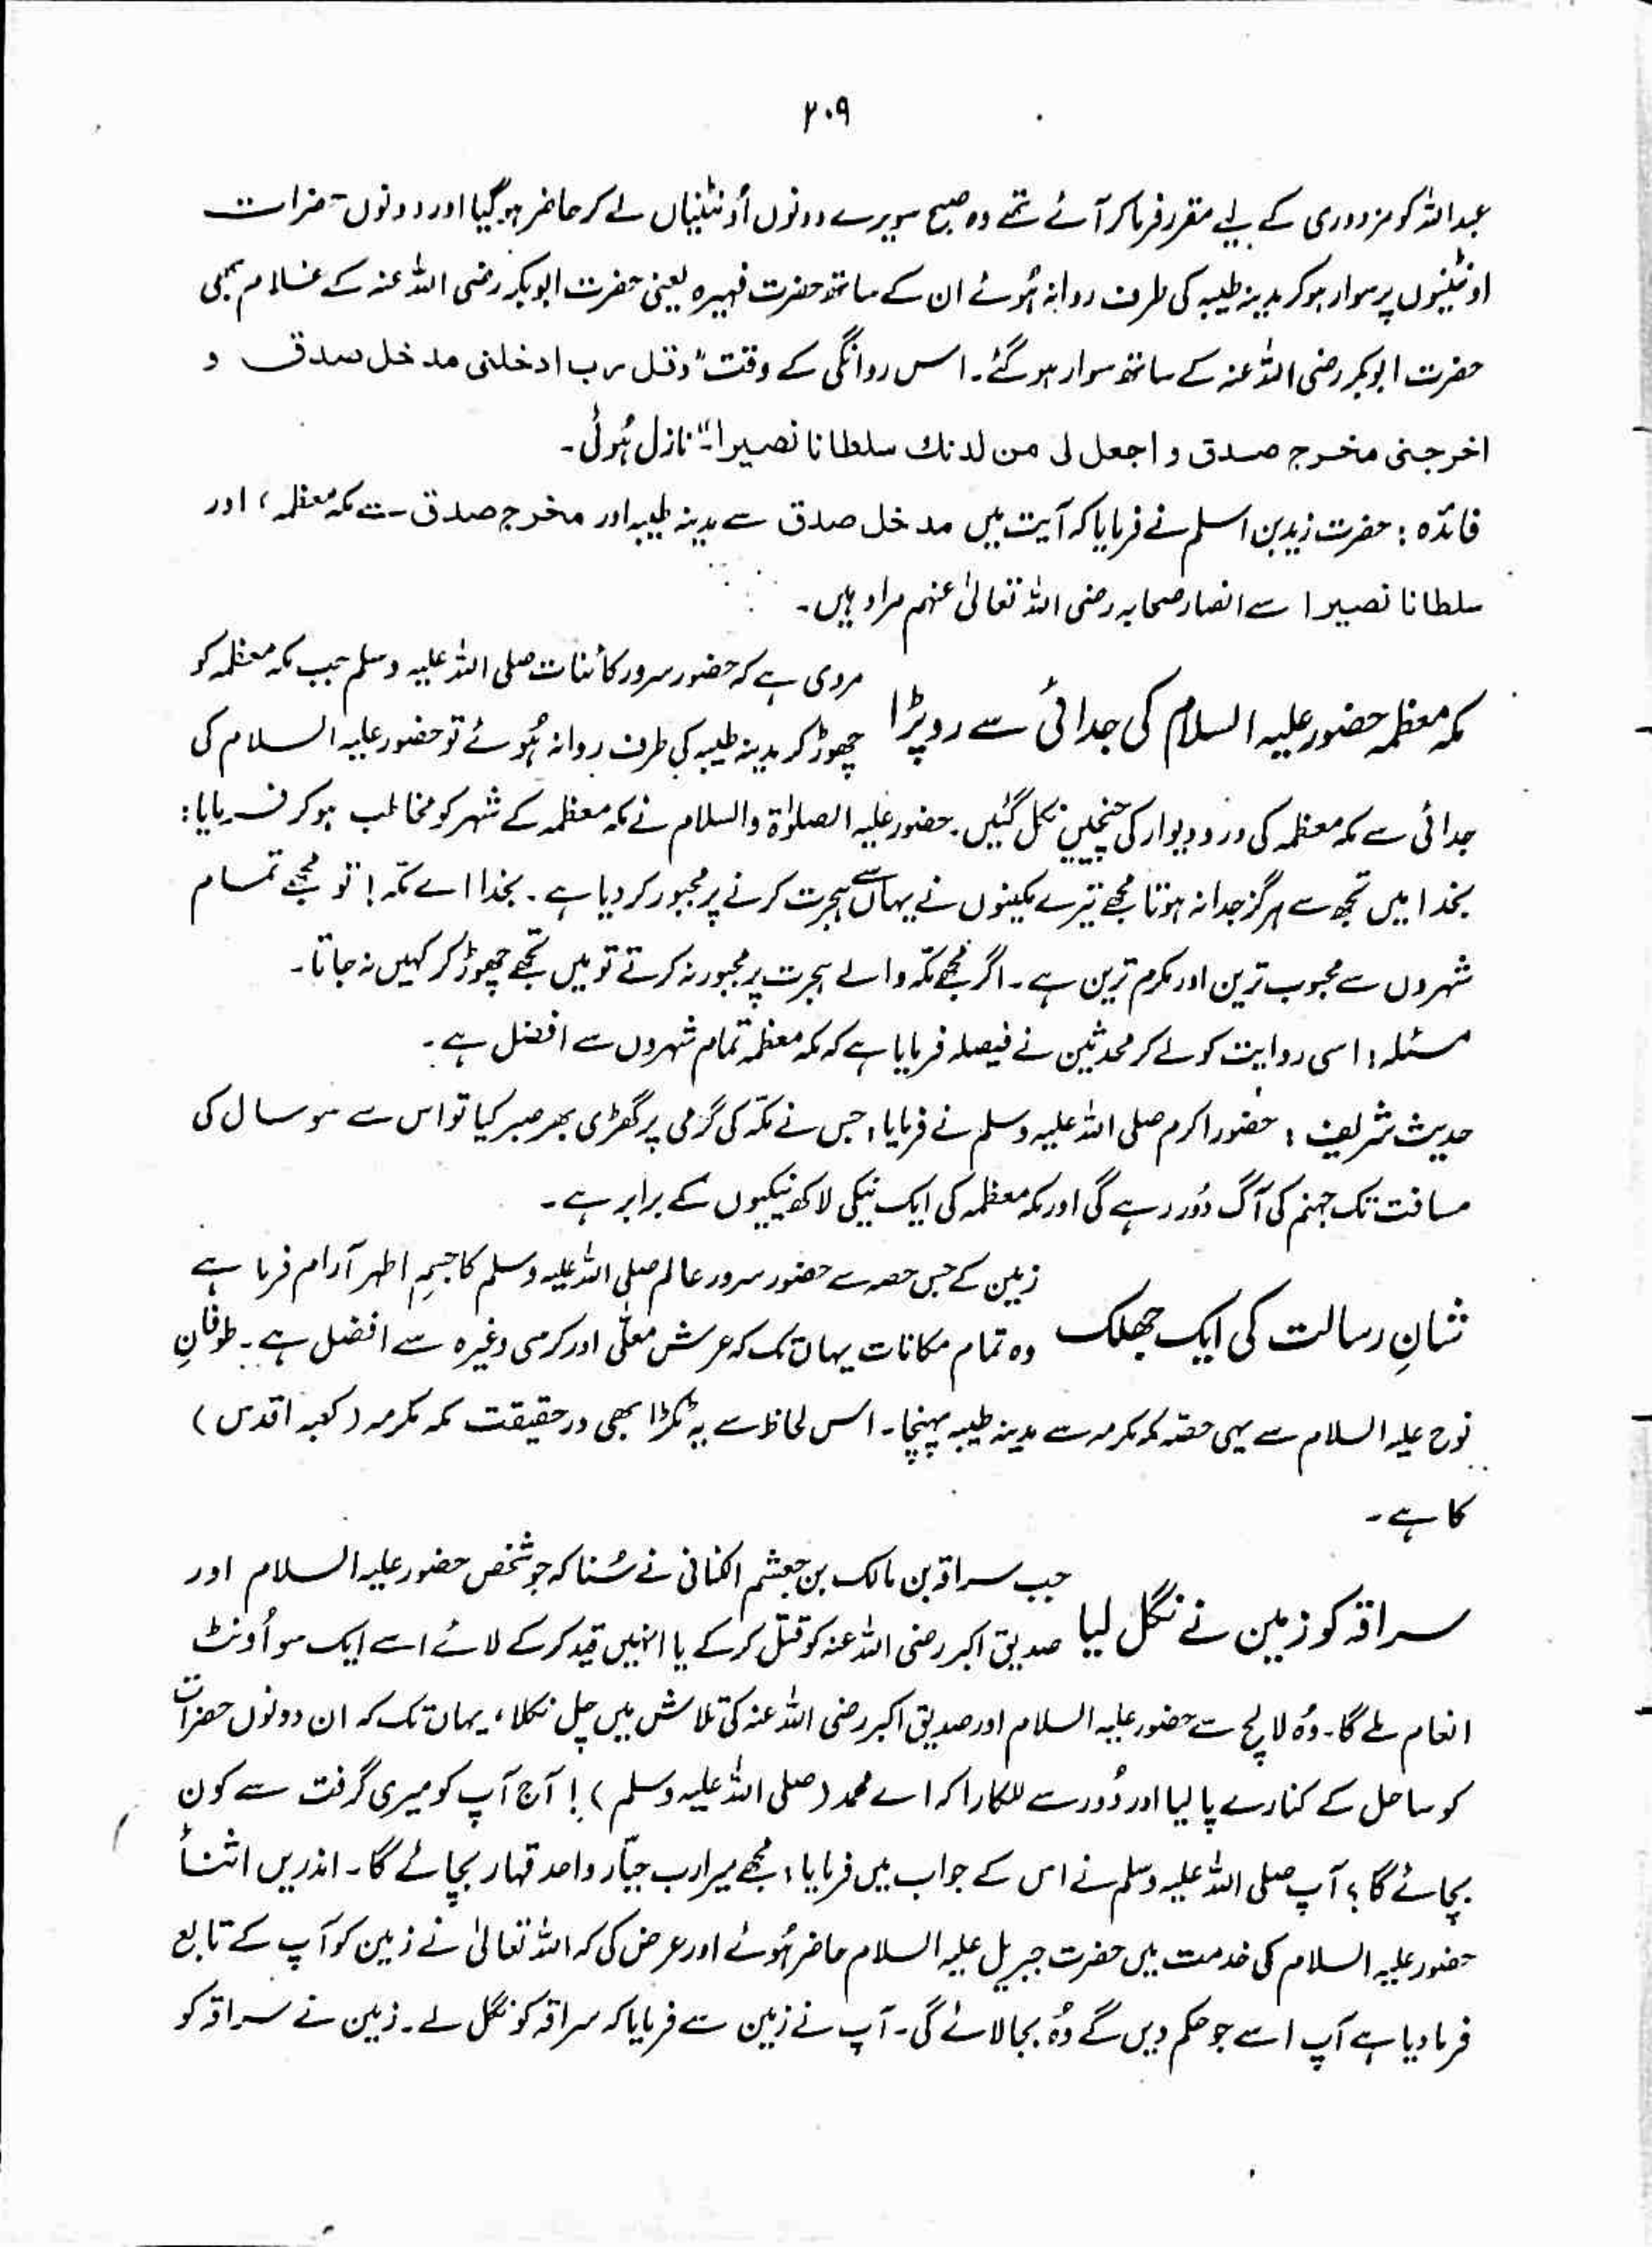 ۲۰۹
عبداللہ کو مزدوری کے لیے مقرر فرما کر آئے تھے وہ صبح سویرے دونوں اُونٹنیاں لے کر حاضر ہو گیا اور دونوں حضرات
اونٹنیوں پر سوار ہو کر مدینہ طیبہ کی طرف روانہ ہُوئے ان کے ساتھ حضرت فہیرہ یعنی حضرت ابوبکر رضی اللہ عنہ کے غلام بھی
حضرت ابوبکر رضی اللہ عنہ کے ساتھ سوار ہو گئے۔ اس روانگی کے وقت "وقل رب ادخلنی مدخل صدق و
اخرجنی مخرج صدق و اجعل لی من لدنك سلطانا نصیرا۔" نازل ہُوئی۔
فائدہ : حضرت زید بن اسلم نے فرمایا کہ آیت میں مدخل صدق سے مدینہ طیبہ اور مخرج صدق سے مکہ معظمہ، اور
سلطانا نصیرا سے انصار صحابہ رضی اللہ تعالیٰ عنہم مراد ہیں۔
مکہ معظمہ حضور علیہ السلام کی جدائی سے رو پڑا
مروی ہے کہ حضور سرور کائنات صلی اللہ علیہ وسلم جب مکہ معظمہ کو
چھوڑ کر مدینہ طیبہ کی طرف روانہ ہُوئے تو حضور علیہ السلام کی
جدائی سے مکہ معظمہ کی در و دیوار کی چیخیں نکل گئیں۔ حضور علیہ الصلوٰۃ والسلام نے مکہ معظمہ کے شہر کو مخاطب ہو کر فرمایا:
بخدا میں تجھ سے ہرگز جدا نہ ہوتا مجھے تیرے مکینوں نے یہاں سے ہجرت کرنے پر مجبور کر دیا ہے۔ بخدا اے مکّہ! تو مجھے تمام
شہروں سے محبوب ترین اور مکرم ترین ہے۔ اگر مجھے مکّہ والے ہجرت پر مجبور نہ کرتے تو میں تجھے چھوڑ کر کہیں نہ جاتا۔
مسئلہ : اسی روایت کو لے کر محدثین نے فیصلہ فرمایا ہے کہ مکہ معظمہ تمام شہروں سے افضل ہے۔
حدیث شریف : حضور اکرم صلی اللہ علیہ وسلم نے فرمایا، جس نے مکّہ کی گرمی پر گھڑی بھر صبر کیا تو اس سے سو سال کی
مسافت تک جہنم کی آگ دُور رہے گی اور مکہ معظمہ کی ایک نیکی لاکھ نیکیوں کے برابر ہے۔
شانِ رسالت کی ایک جھلک
زمین کے جس حصہ سے حضور سرور عالم صلی اللہ علیہ وسلم کا جسمِ اطہر آرام فرما ہے
وہ تمام مکانات یہاں تک کہ عرش معلّٰی اور کرسی وغیرہ سے افضل ہے۔ طوفانِ
نوح علیہ السلام سے یہی حصّہ مکہ مکرمہ سے مدینہ طیبہ پہنچا۔ اس لحاظ سے یہ ٹکڑا بھی درحقیقت مکہ مکرمہ (کعبہ اقدس)
کا ہے۔
سراقہ کو زمین نے نگل لیا
جب سراقہ بن مالک بن جعشم الکنانی نے سُنا کہ جو شخص حضور علیہ السلام اور
صدیق اکبر رضی اللہ عنہ کو قتل کر کے یا انہیں قید کر کے لائے اسے ایک سو اُونٹ
انعام ملے گا۔ وُہ لالچ سے حضور علیہ السلام اور صدیق اکبر رضی اللہ عنہ کی تلاش میں چل نکلا، یہاں تک کہ ان دونوں حضرات
کو ساحل کے کنارے پا لیا اور دُور سے للکارا کہ اے محمد (صلی اللہ علیہ وسلم)! آج آپ کو میری گرفت سے کون
بچائے گا؟ آپ صلی اللہ علیہ وسلم نے اس کے جواب میں فرمایا، مجھے میرا رب جبّار واحد قہار بچائے گا۔ اندریں اثنأ
حضور علیہ السلام کی خدمت میں حضرت جبریل علیہ السلام حاضر ہُوئے اور عرض کی کہ اللہ تعالیٰ نے زمین کو آپ کے تابع
فرما دیا ہے آپ اسے جو حکم دیں گے وُہ بجا لائے گی۔ آپ نے زمین سے فرمایا کہ سراقہ کو نگل لے۔ زمین نے سراقہ کو